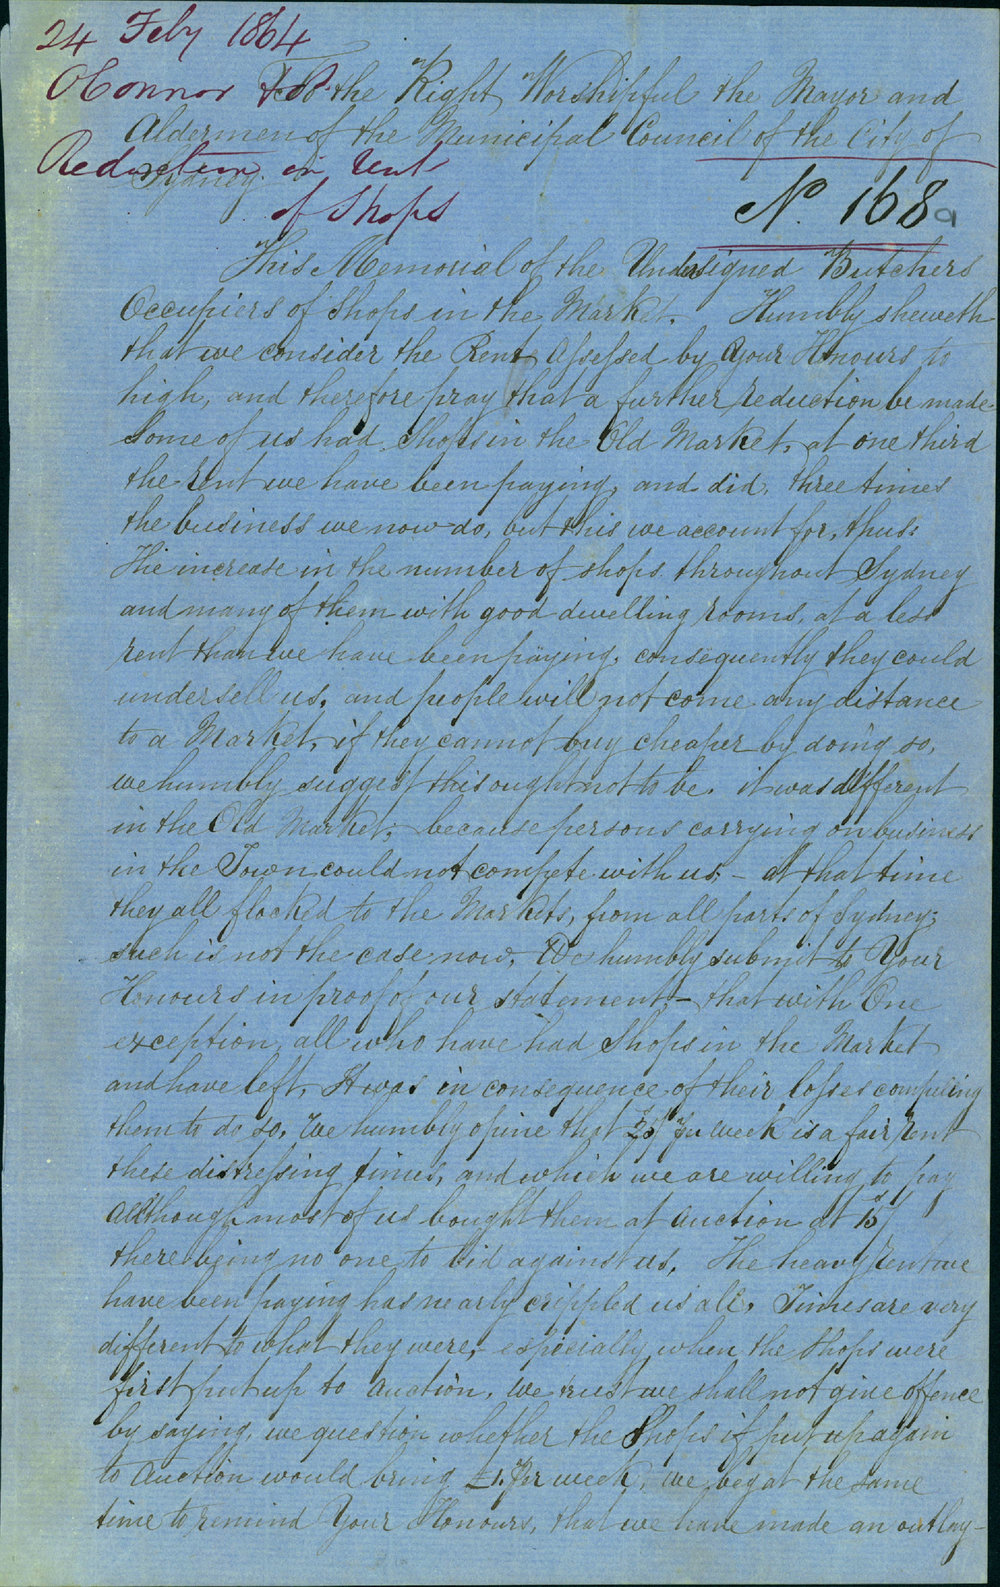 24 Feby 1864
O'Connor & oo
To the Right Worshipful the Mayor and
Aldermen of the Municipal Council of the City of
Sydney.
Reduction in Rent
of Shops
No. 168a
This Memorial of the Undersigned Butchers
Occupiers of Shops in the Market. Humbly sheweth
that we consider the Rent Assessed by Your Honours to
high, and therefore pray that a further reduction be made
Some of us had Shops in the Old Market, at one third
the rent we have been paying, and did, three times
the business we now do, but this we account for, thus:
The increase in the number of shops throughout Sydney
and many of them with good dwelling rooms, at a less
rent than we have been paying, consequently they could
undersell us, and people will not come any distance
to a Market, if they cannot buy cheaper by doing so,
we humbly suggest this ought not to be. it was different
in the Old Market; because persons carrying on business
in the Town could not compete with us, - at that time
they all flocked to the Markets, from all parts of Sydney;
such is not the case now. We humbly submit to Your
Honours in proof of our statement - that with One
exception, all who have had Shops in the Market
and have left, It was in consequence of their losses compelling
them to do so. We humbly opine that per week is a fair rent
these distressing times, and which we are willing to pay
Allthough most of us bought them at Auction at 15/
there being no one to bid against us, The heavy rent we
have been paying has nearly crippled us all. Times are very
different to what they were, - especially when the Shops were
first put up to Auction. We trust we shall not give offence
by saying, we question whether the Shops if put up again
to Auction would bring £1. Per week, we beg at the same
time to remind Your Honours, that we have made an outlay -